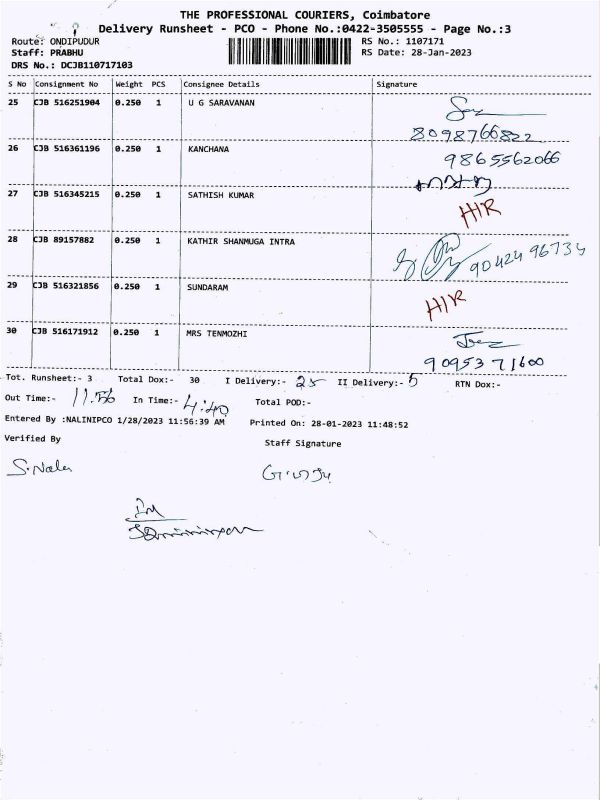 THE PROFESSIONAL COURIERS, Coimbatore
Delivery Runsheet - PCO - Phone No.:0422-3505555 - Page No.:3
Route: ONDIPUDUR
RS No.: 1107171
Staff: PRABHU
RS Date: 28-Jan-2023
DRS No.: DCJB110717103
S No Consignment No Weight PCS Consignee Details Signature
25 CJB 516251904 0.250 1 U G SARAVANAN
8098766822
26 CJB 516361196 0.250 1 KANCHANA 9865562066
27 CJB 516345215 0.250 1 SATHISH KUMAR H/R
28 CJB 89157882 0.250 1 KATHIR SHANMUGA INTRA 9042496734
29 CJB 516321856 0.250 1 SUNDARAM H/R
30 CJB 516171912 0.250 1 MRS TENMOZHI
9095371600
Tot. Runsheet:- 3 Total Dox:- 30 I Delivery:- 25 II Delivery:- 5 RTN Dox:-
Out Time:- 11.56 In Time:- 4:40 Total POD:-
Entered By :NALINIPCO 1/28/2023 11:56:39 AM Printed On: 28-01-2023 11:48:52
Verified By Staff Signature